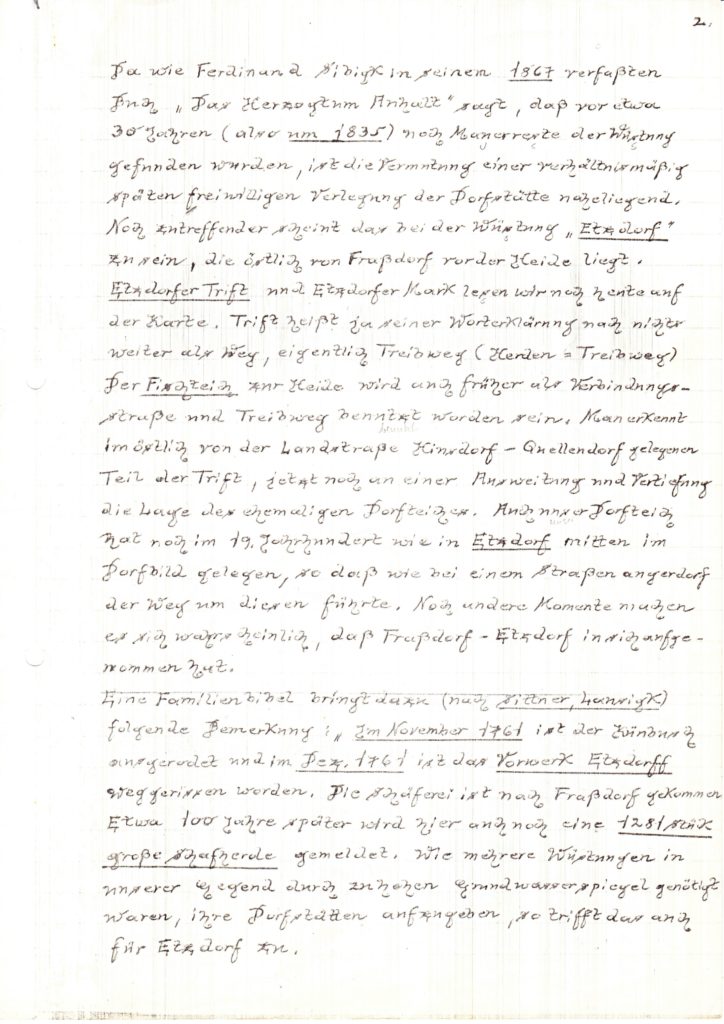 2.
Da wie Ferdinand Sibigk in seinem 1867 verfaßten
Buch „Das Herzogtum Anhalt" sagt, daß vor etwa
30 Jahren (also um 1835) noch Mauerreste der Wüstung
gefunden wurden, ist die Vermutung einer verhältnismäßig
späten freiwilligen Verlegung der Dorfstätte naheliegend.
Noch zutreffender scheint das bei der Wüstung „Etzdorf"
zu sein, die östlich von Fraßdorf vor der Heide liegt.
Etzdorfer Trift und Etzdorfer Mark lesen wir noch heute auf
der Karte. Trift heißt ja seiner Worterklärung nach nichts
weiter als Weg, eigentlich Treibweg (Herden = Treibweg)
Der Fischteich zur Heide wird auch früher als Verbindungs-
straße und Treibweg benutzt worden sein. Man erkennt
im östlich von der Landstraße Hinsdorf - Quellendorf gelegenen
Teil der Trift, jetzt noch an einer Ausweitung und Vertiefung
die Lage des ehemaligen Dorfteiches. Auch unser Dorfteich
hat noch im 19. Jahrhundert wie in Etzdorf mitten im
Dorfbild gelegen, so daß wie bei einem Straßenangerdorf
der Weg um diesen führte. Noch andere Momente machen
es sich wahrscheinlich, daß Fraßdorf - Etzdorf in sich aufge-
nommen hat.
Eine Familienbibel bringt dazu (nach Sittner, Lausigk)
folgende Bemerkung: „Im November 1761 ist der
ausgerodet und im Dez. 1761 ist das Vorwerk Etzdorff
weggerissen worden. Die Schäferei ist nach Fraßdorf gekommen
Etwa 100 Jahre später wird hier auch noch eine 1281 stück
große Schafherde gemeldet. Wie mehrere Wüstungen in
unserer Gegend durch zu hohen Grundwasserspiegel genötigt
waren, ihre Dorfstätten aufzugeben, so trifft das auch
für Etzdorf zu.